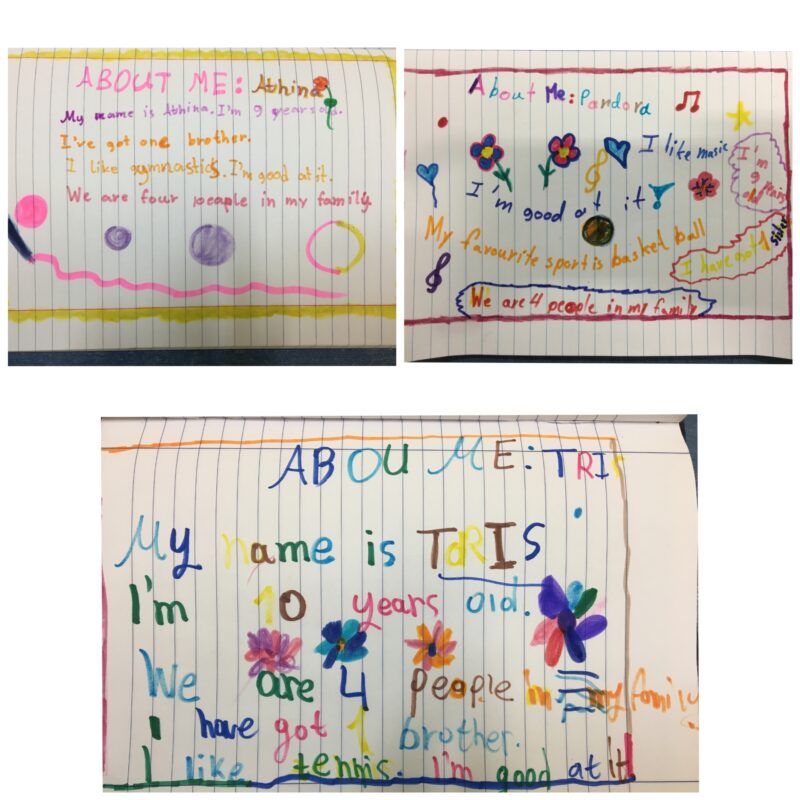 ABOUT ME: Athina
My name is Athina. I'm 9 years old.
I've got one brother.
I like gymnastics. I'm good at it.
We are four people in my family
About Me: Pandora
I like music
I'm 9 years old
I'm good at it
My favourite sport is basket ball
I have got 1 sister
We are 4 people in my family
ABOU ME: TRI
My name is
I'm 10 years old.
We are 4 people in my family
I have got 1 brother.
I like tennis. I'm good at it.